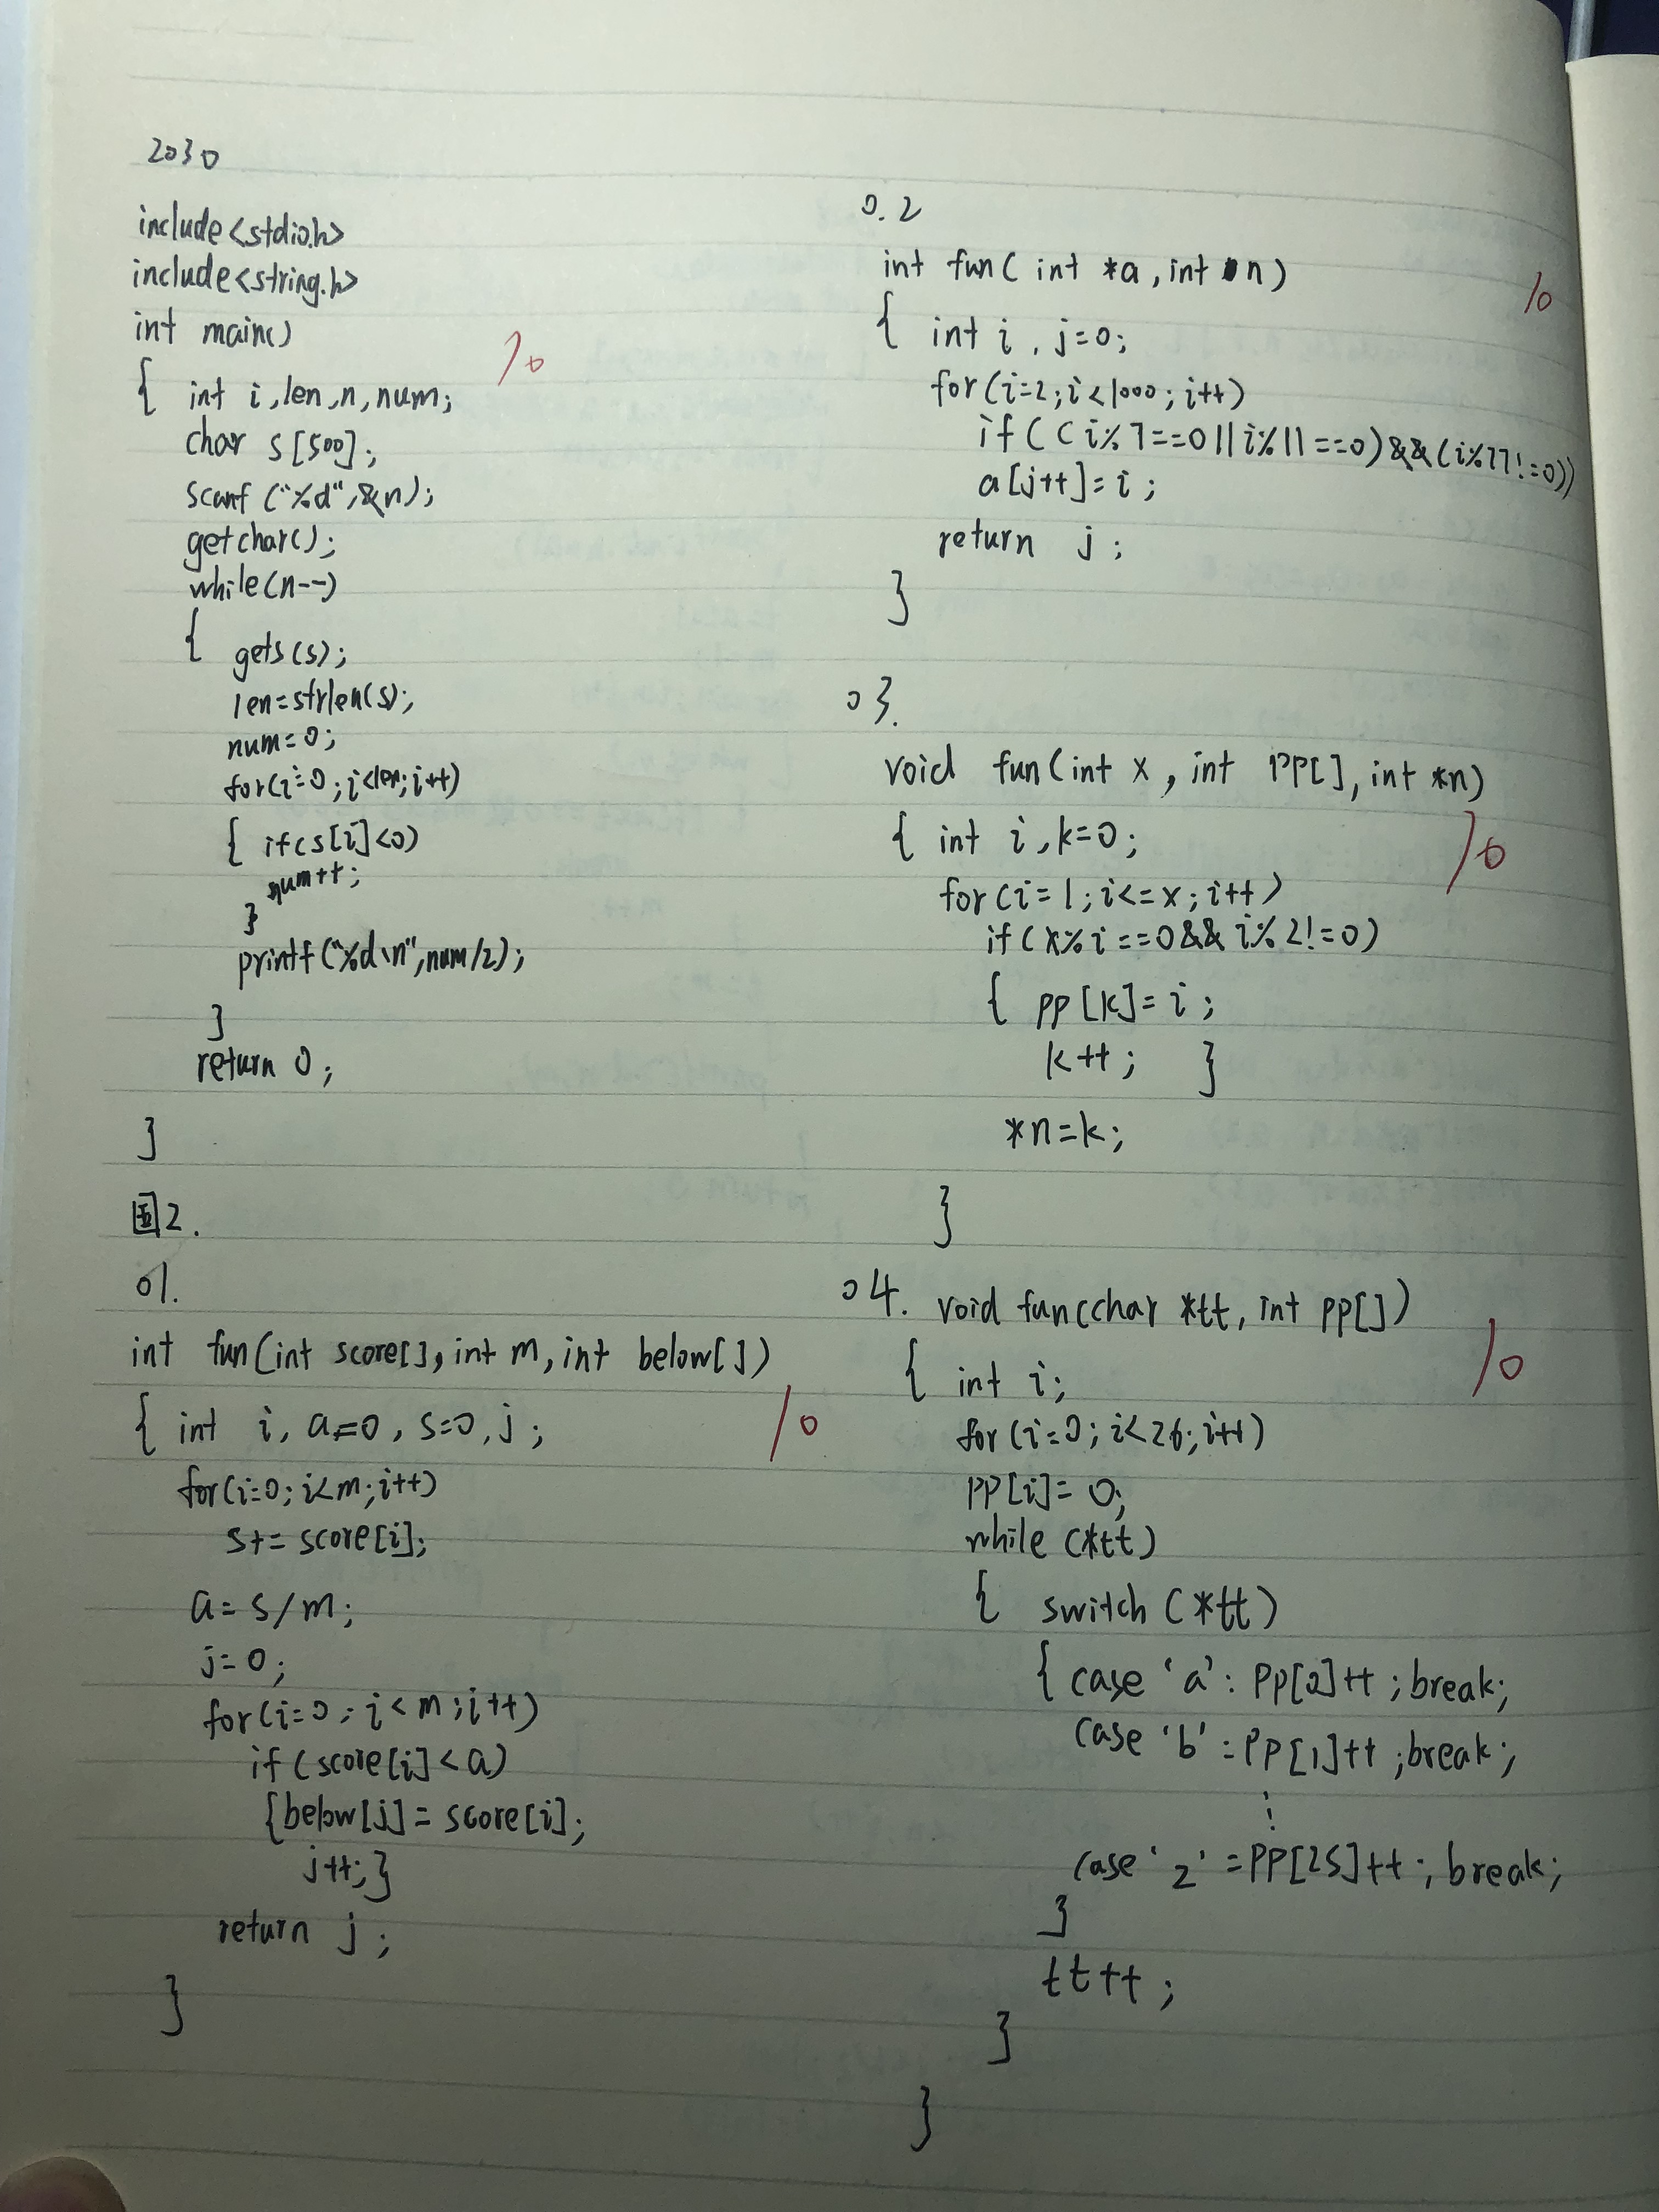 2030
include<stdio.h>
include<string.h>
int main()
{ int i,len,n,num;
char s[500];
scanf ("%d",&n);
getchar();
while(n--)
{ gets(s);
len=strlen(s);
num=0;
for(i=0;i<len;i++)
{ if(s[i]<0)
num++;
}
printf("%d\n",num/2);
}
return 0;
}
10
2.
01.
int fun(int score[],int m,int below[])
{ int i, a=0, s=0, j;
for(i=0;i<m;i++)
s+= score[i];
a= s/m;
j=0;
for(i=0;i<m;i++)
if(score[i]<a)
{below[j]= score[i];
j++;}
return j;
}
10
0.2
int fun( int *a,int n)
{ int i, j=0;
for(i=2;i<1000;i++)
if((i%7==0||i%11==0)&&(i%77!=0))
a[j++]=i;
return j;
}
10
03.
void fun(int x, int pp[],int *n)
{ int i,k=0;
for(i=1;i<=x;i++)
if(x%i==0&&i%2!=0)
{ pp[k]=i;
k++; }
*n=k;
}
10
04. void fun(char *tt, int pp[])
{ int i;
for(i=0;i<26;i++)
pp[i]=0;
while (*tt)
{ switch (*tt)
{ case 'a': pp[0]++;break;
case 'b':pp[1]++;break;
⋮
case 'z'=pp[25]++;break;
}
tt++;
}
}
10